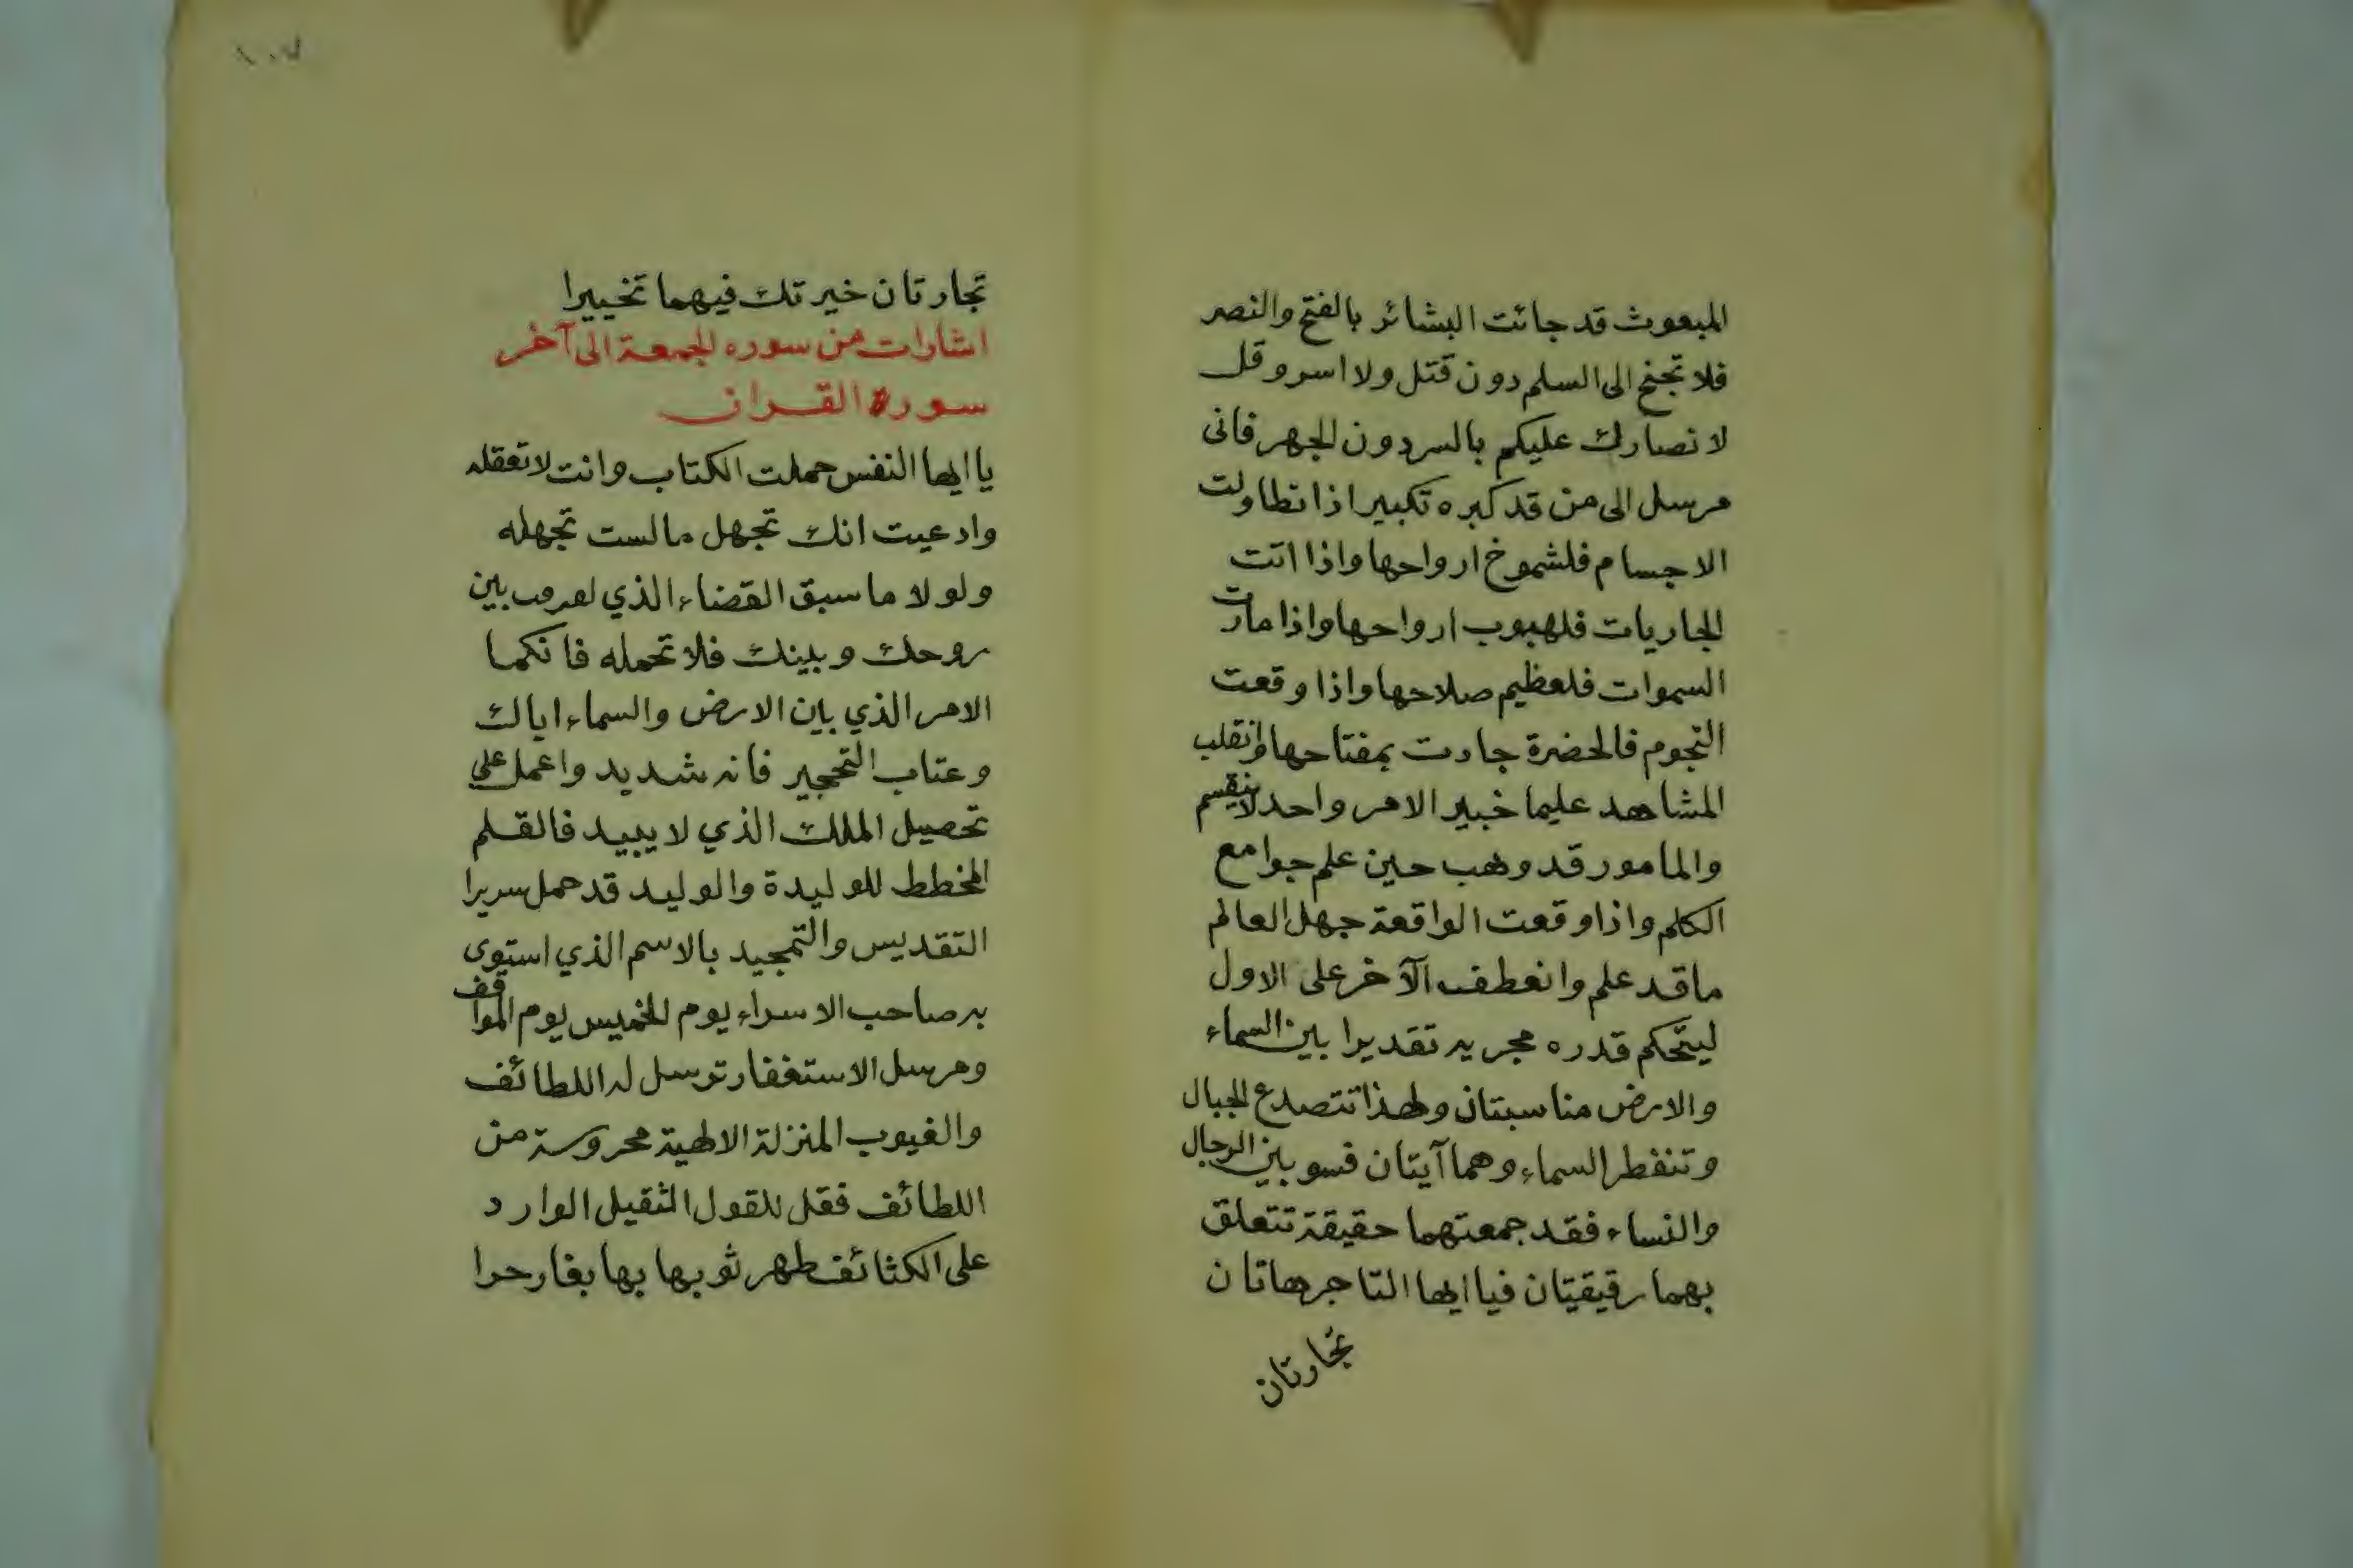 المبعوث قد جائت البشائر بالفتح والنصر
فلا تجنح الى السلم دون قتل ولا اسر وقل
لا نصارك عليكم بالسر دون الجهر فانى
مرسل الى من قد كبره تكبيرا اذا تطاولت
الاجسام فلشموخ ارواحها واذا اتت
الجاريات فلهبوب ارواحها واذا مارت
السموات فلعظيم صلاحها واذا وقعت
النجوم فالحضرة جادت بمفتاحها وانقلب
المشاهد عليما خبير الامر واحد لا ينقسم
والمامور قد وهب حين علم جوامع
الكلم واذا وقعت الواقعة جهل العالم
ما قد علم وانعطف الآخر على الاول
ليتحكم قدره مجريه تقديرا بين السماء
والارض مناسبتان ولهذا تتصدع الجبال
وتنفطر السماء وهما آيتان فسو بين الرجال
والنساء فقد جمعتهما حقيقة تتعلق
بهما رقيقتان فيا ايها التاجر هاتان
تجارتان
١٠٧
تجارتان خيرتك فيهما تخييرا
اشارات من سوره الجمعة الى آخر
سورة القران
يا ايها النفس حملت الكتاب وانت لا تعقله
وادعيت انك تجهل ما لست تجهله
ولولا ما سبق القضاء الذي بين
روحك وبينك فلا تحمله فانكما
الامر الذي بين الارض والسماء اياك
وعتاب التحجير فانه شديد واعمل على
تحصيل الملك الذي لا يبيد فالقلم
المخطط للوليدة والوليد قد حمل سريرا
التقديس والتمجيد بالاسم الذي استوى
به صاحب الاسراء يوم الخميس يوم المواقف
ومرسل الاستغفار توسل له اللطائف
والغيوب المنزلة الالهية محروسة من
اللطائف فقل للقول الثقيل الوارد
على الكثائف طهر ثوبها بها بغار حرا